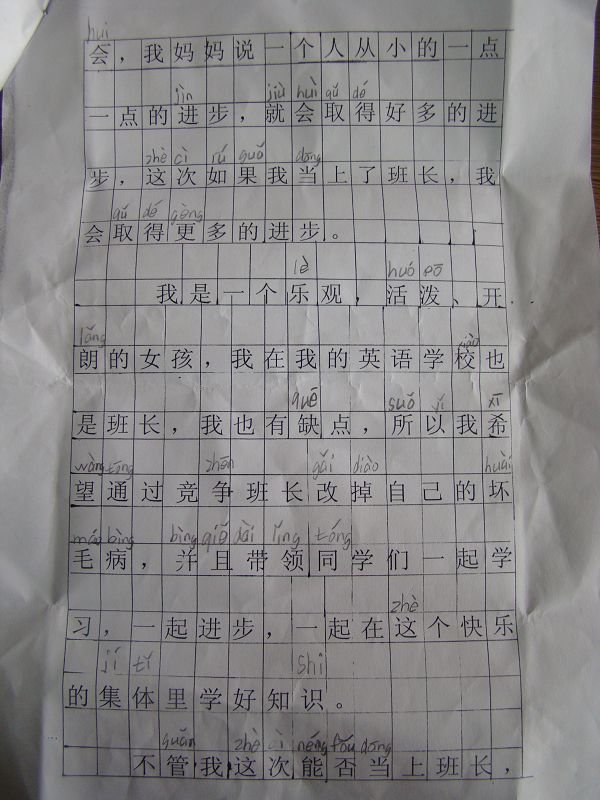 huì
会，我妈妈说一个人从小的一点
jìn jiù huì qǔ dé
一点的进步，就会取得好多的进
zhè cì rú guǒ dāng
步，这次如果我当上了班长，我
qǔ dé gèng
会取得更多的进步。
lè huó pō
我是一个乐观，活泼、开
lǎng xiào
朗的女孩，我在我的英语学校也
quē suǒ yǐ xī
是班长，我也有缺点，所以我希
wàng tōng zhēn gǎi diào huài
望通过竞争班长改掉自己的坏
máo bìng bìng qiě dài lǐng tóng
毛病，并且带领同学们一起学
zhè
习，一起进步，一起在这个快乐
jí tǐ shi
的集体里学好知识。
guǎn zhè cì néng fǒu dāng
不管我这次能否当上班长，